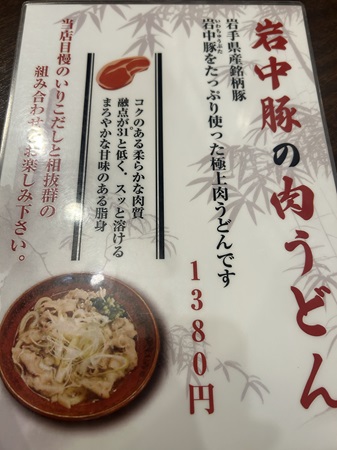 岩中豚の肉うどん
岩手県産銘柄豚
いわちゅうぶた
岩中豚をたっぷり使った極上肉うどんです
1380円
コクのある柔らかな肉質
融点が31°と低く、スッと溶ける
まろやかな甘味のある脂身
当店自慢のいりこだしと相抜群の
組み合わせをお楽しみ下さい。